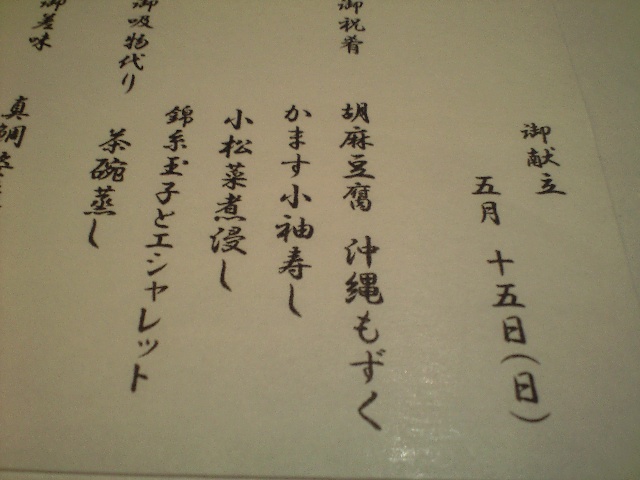 御献立
五月 十五日(日)
御祝肴
胡麻豆腐 沖縄もずく
かます小袖寿し
小松菜煮浸し
錦糸玉子とエシャレット
御吸物代り
茶碗蒸し
御差味
真鯛